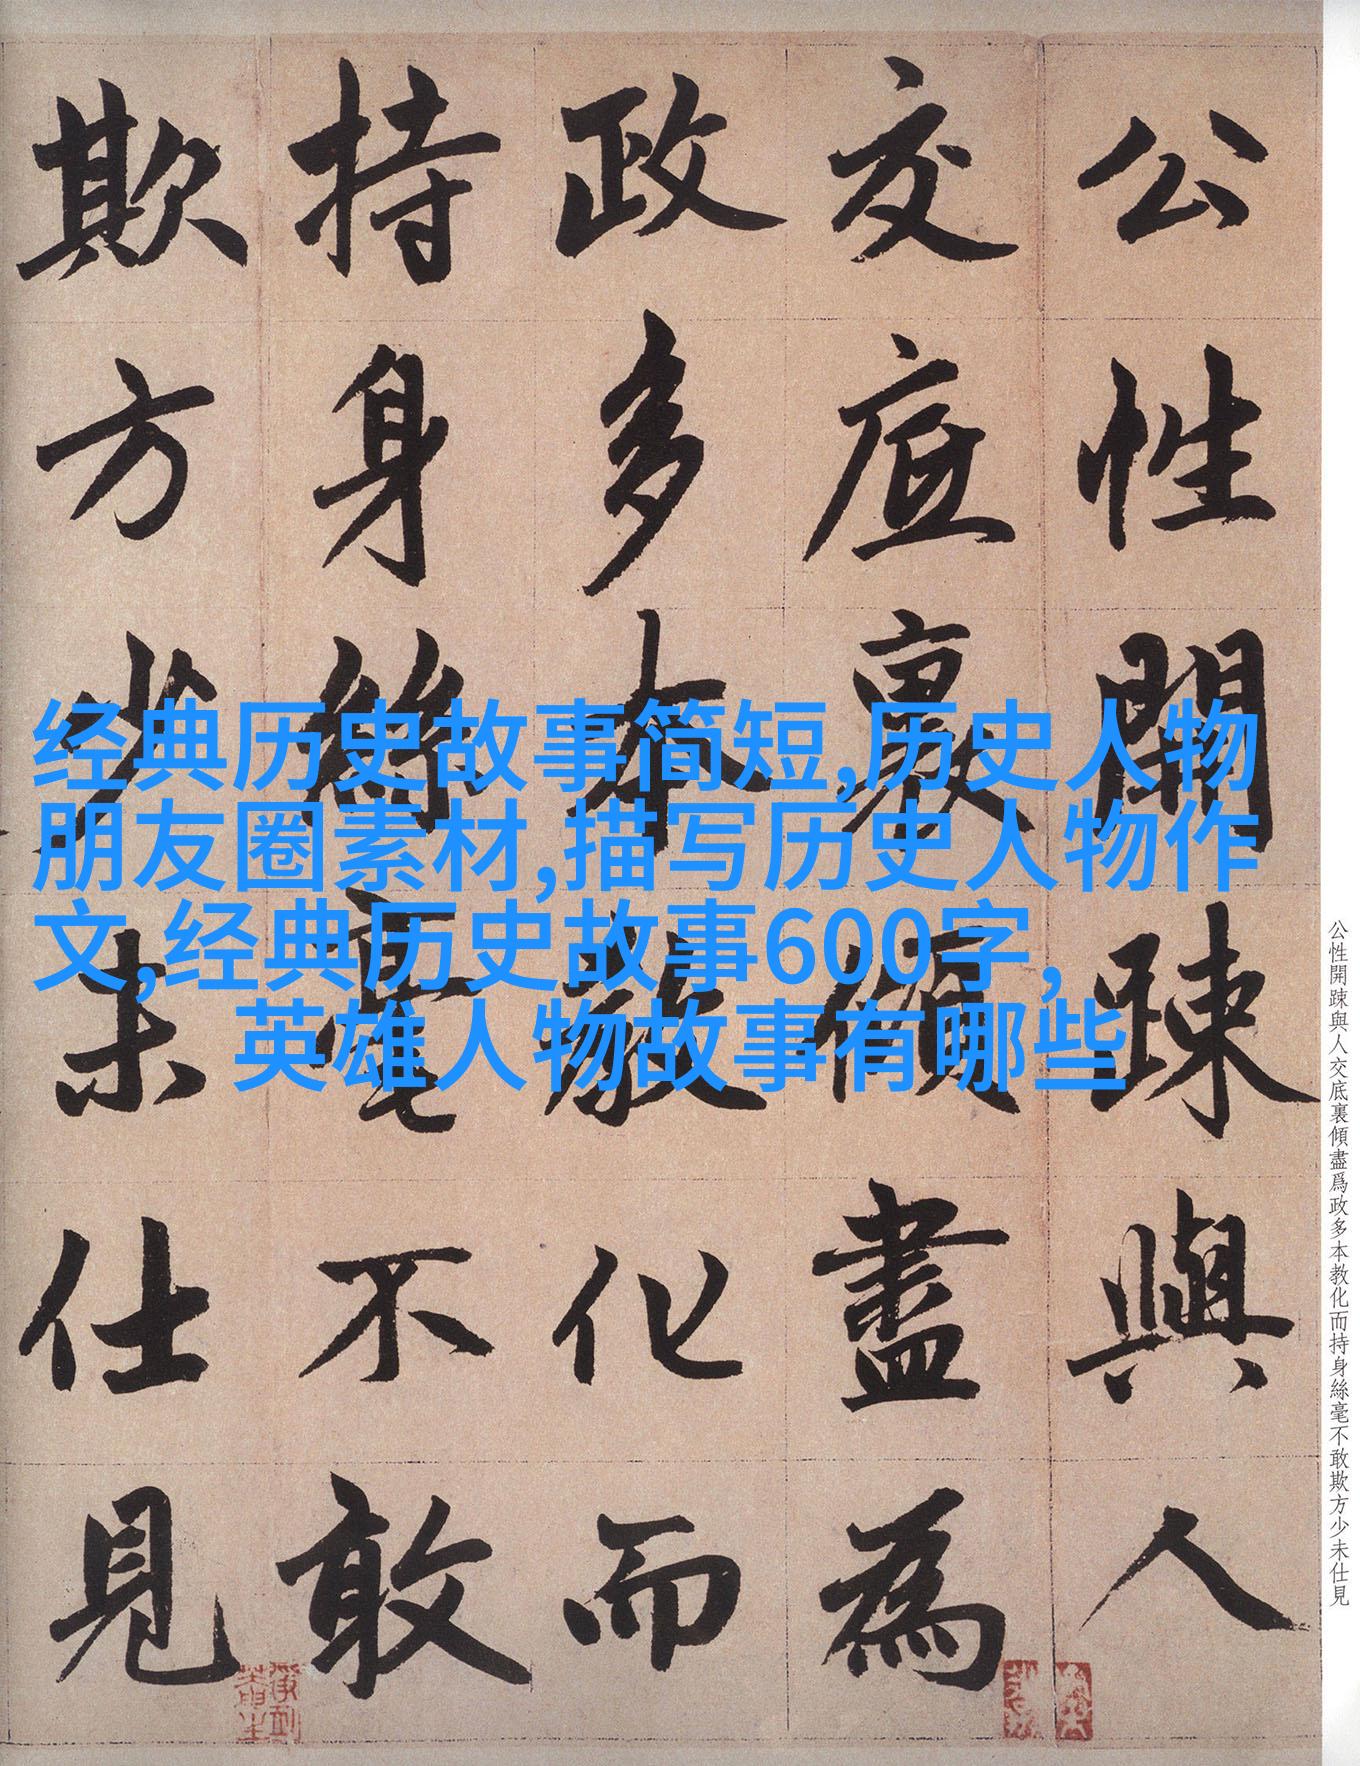 公性開踈與人
交底裏傾盡為
政多本教化而
持身絲毫不敢
欺方少未仕見
经典历史故事简短,历史人物
朋友圈素材,描写历史人物作
文,经典历史故事600字,
英雄人物故事有哪些
公性開踈與人交底裏傾盡爲政多本教化而持身絲毫不敢欺方少未仕見